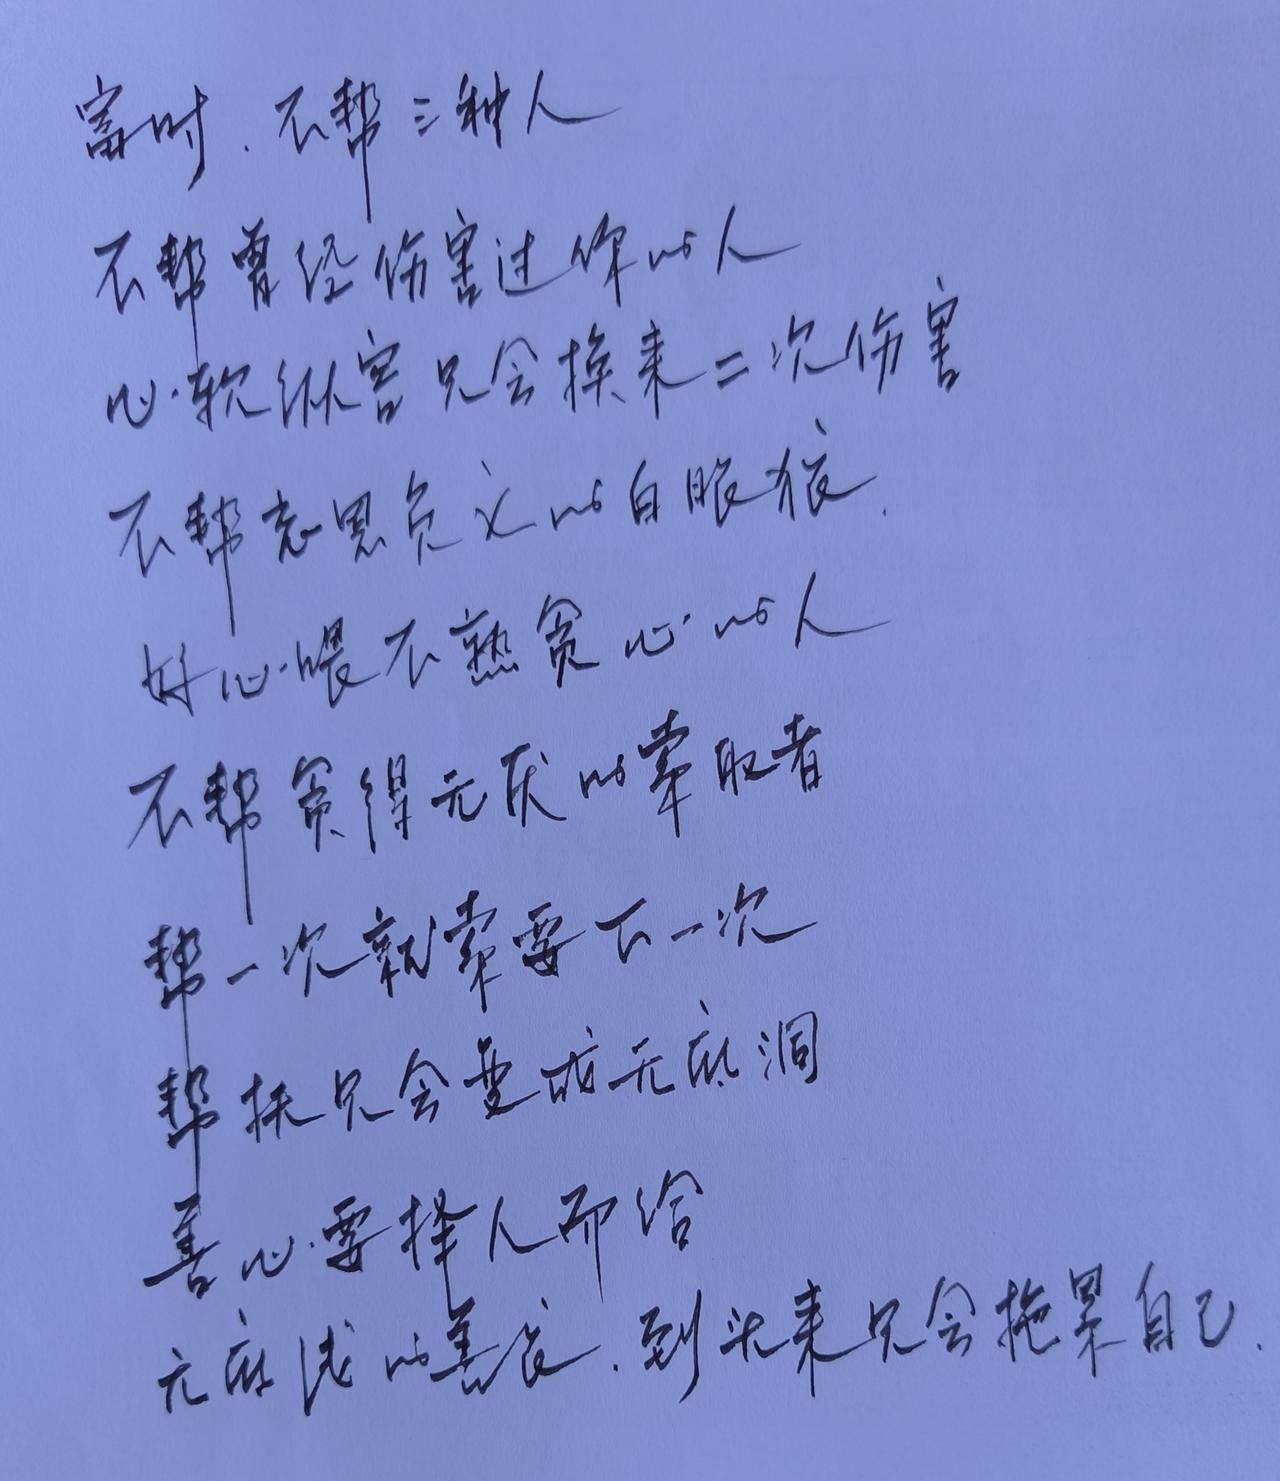 富时、不帮三种人
不帮曾经伤害过你的人
心软纵容只会换来二次伤害
不帮忘恩负义的白眼狼.
好心喂不熟贪心的人
不帮贪得无厌的索取者
帮一次就索要下一次
帮扶只会变成无底洞
善心要择人而给
无底线的善良.到头来只会拖累自己.